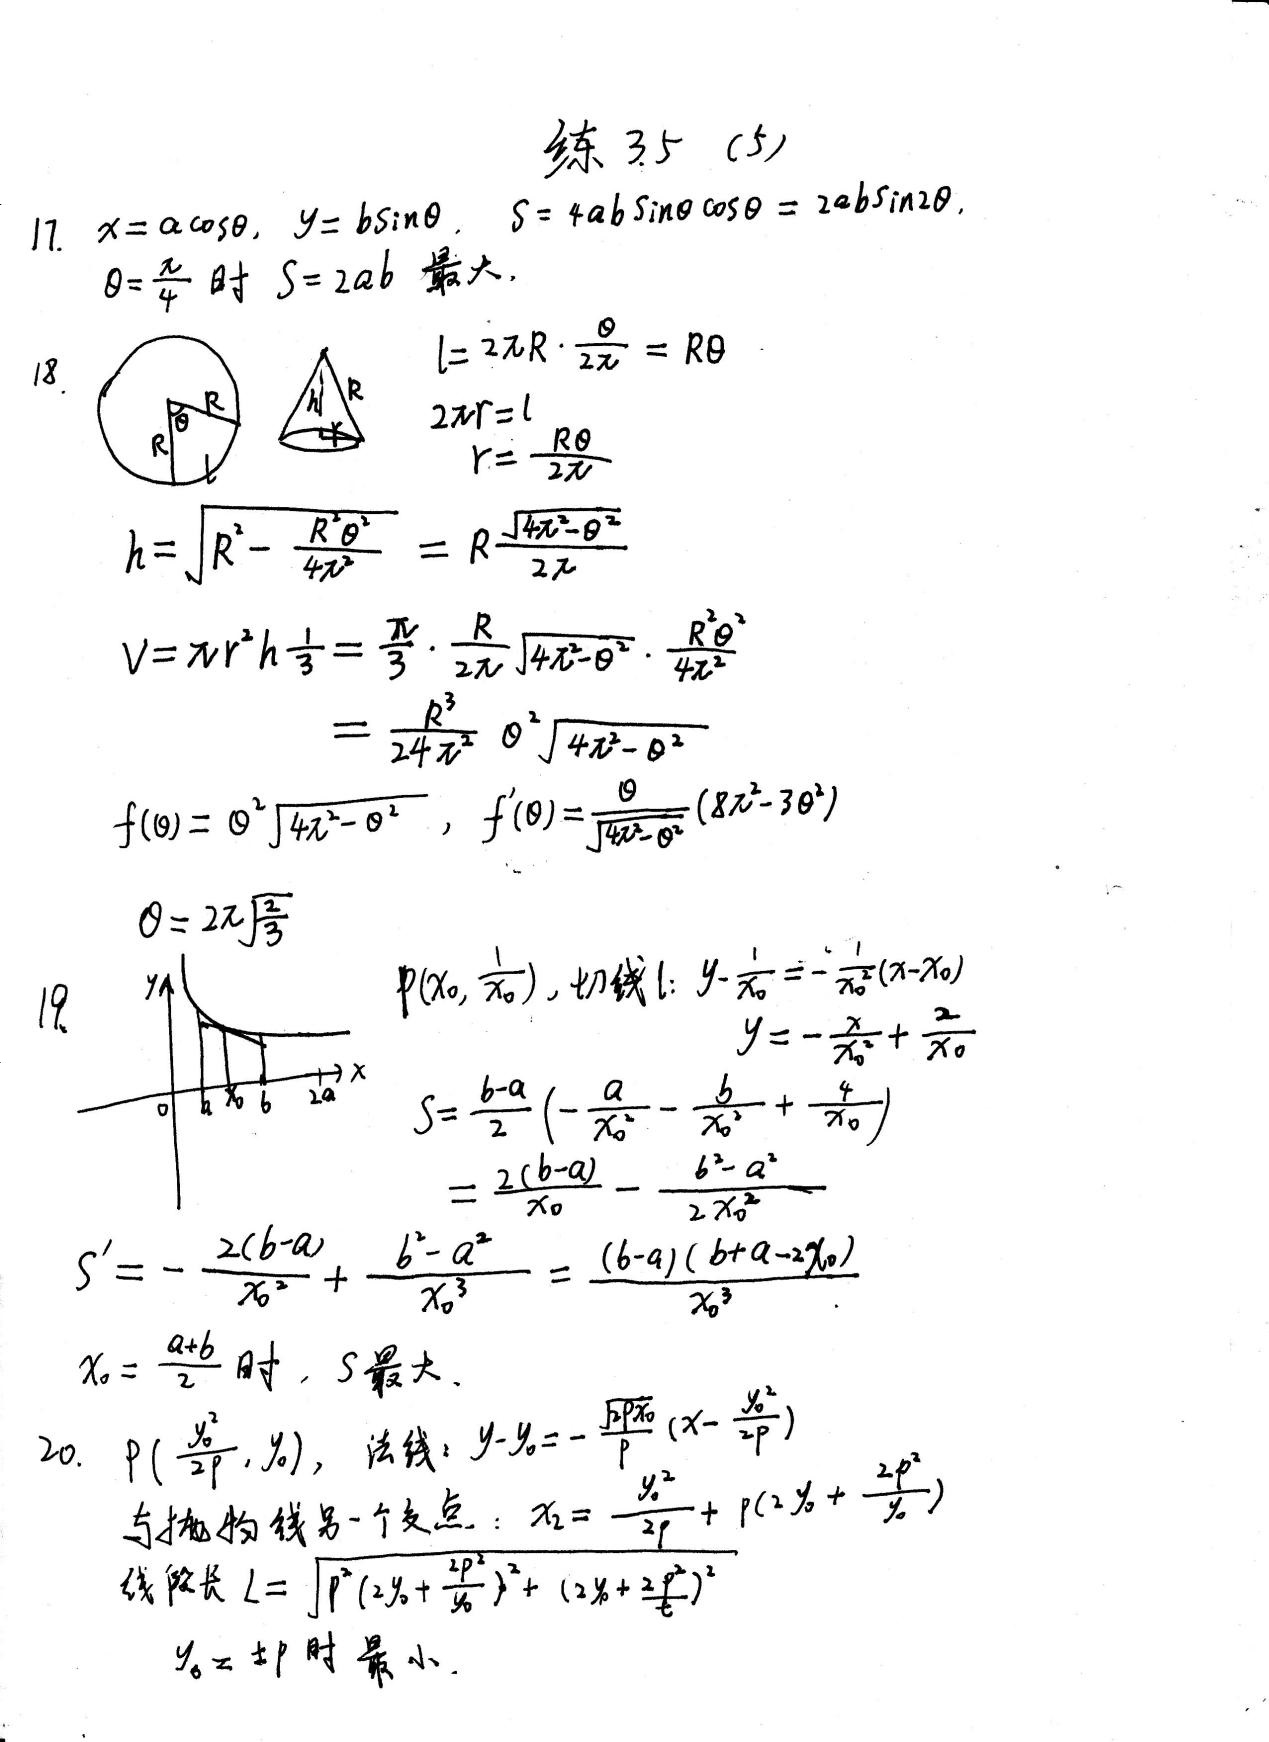 练 3.5 (5)
17. x = a cosθ, y = b sinθ. S = 4ab sinθ cosθ = 2ab sin2θ.
θ = π/4 时 S = 2ab 最大.
18. R θ R l h R r l = 2πR · θ/2π = Rθ
2πr = l
r = Rθ/2π
h = √(R² - R²θ²/4π²) = R √(4π²-θ²)/2π
V = πr²h 1/3 = π/3 · R/2π √(4π²-θ²) · R²θ²/4π²
= R³/24π² θ² √(4π²-θ²)
f(θ) = θ² √(4π²-θ²), f'(θ) = θ/√(4π²-θ²) (8π²-3θ²)
θ = 2π √(2/3)
19. y x 0 a x₀ b 2a P(x₀, 1/x₀), 切线 l: y - 1/x₀ = -1/x₀² (x-x₀)
y = -x/x₀² + 2/x₀
S = (b-a)/2 (-a/x₀² - b/x₀² + 4/x₀)
= 2(b-a)/x₀ - (b²-a²)/2x₀²
S' = -2(b-a)/x₀² + (b²-a²)/x₀³ = (b-a)(b+a-2x₀)/x₀³
x₀ = (a+b)/2 时, S 最大.
20. P(y₀²/2p, y₀), 法线: y-y₀ = -√(2px₀)/p (x - y₀²/2p)
与抛物线另一个交点: x₂ = y₀²/2p + p(2y₀ + 2p²/y₀)
线段长 L = √(p²(2y₀ + 2p²/y₀)² + (2y₀ + 2p²/t)²)
y₀ = ±p 时最小.